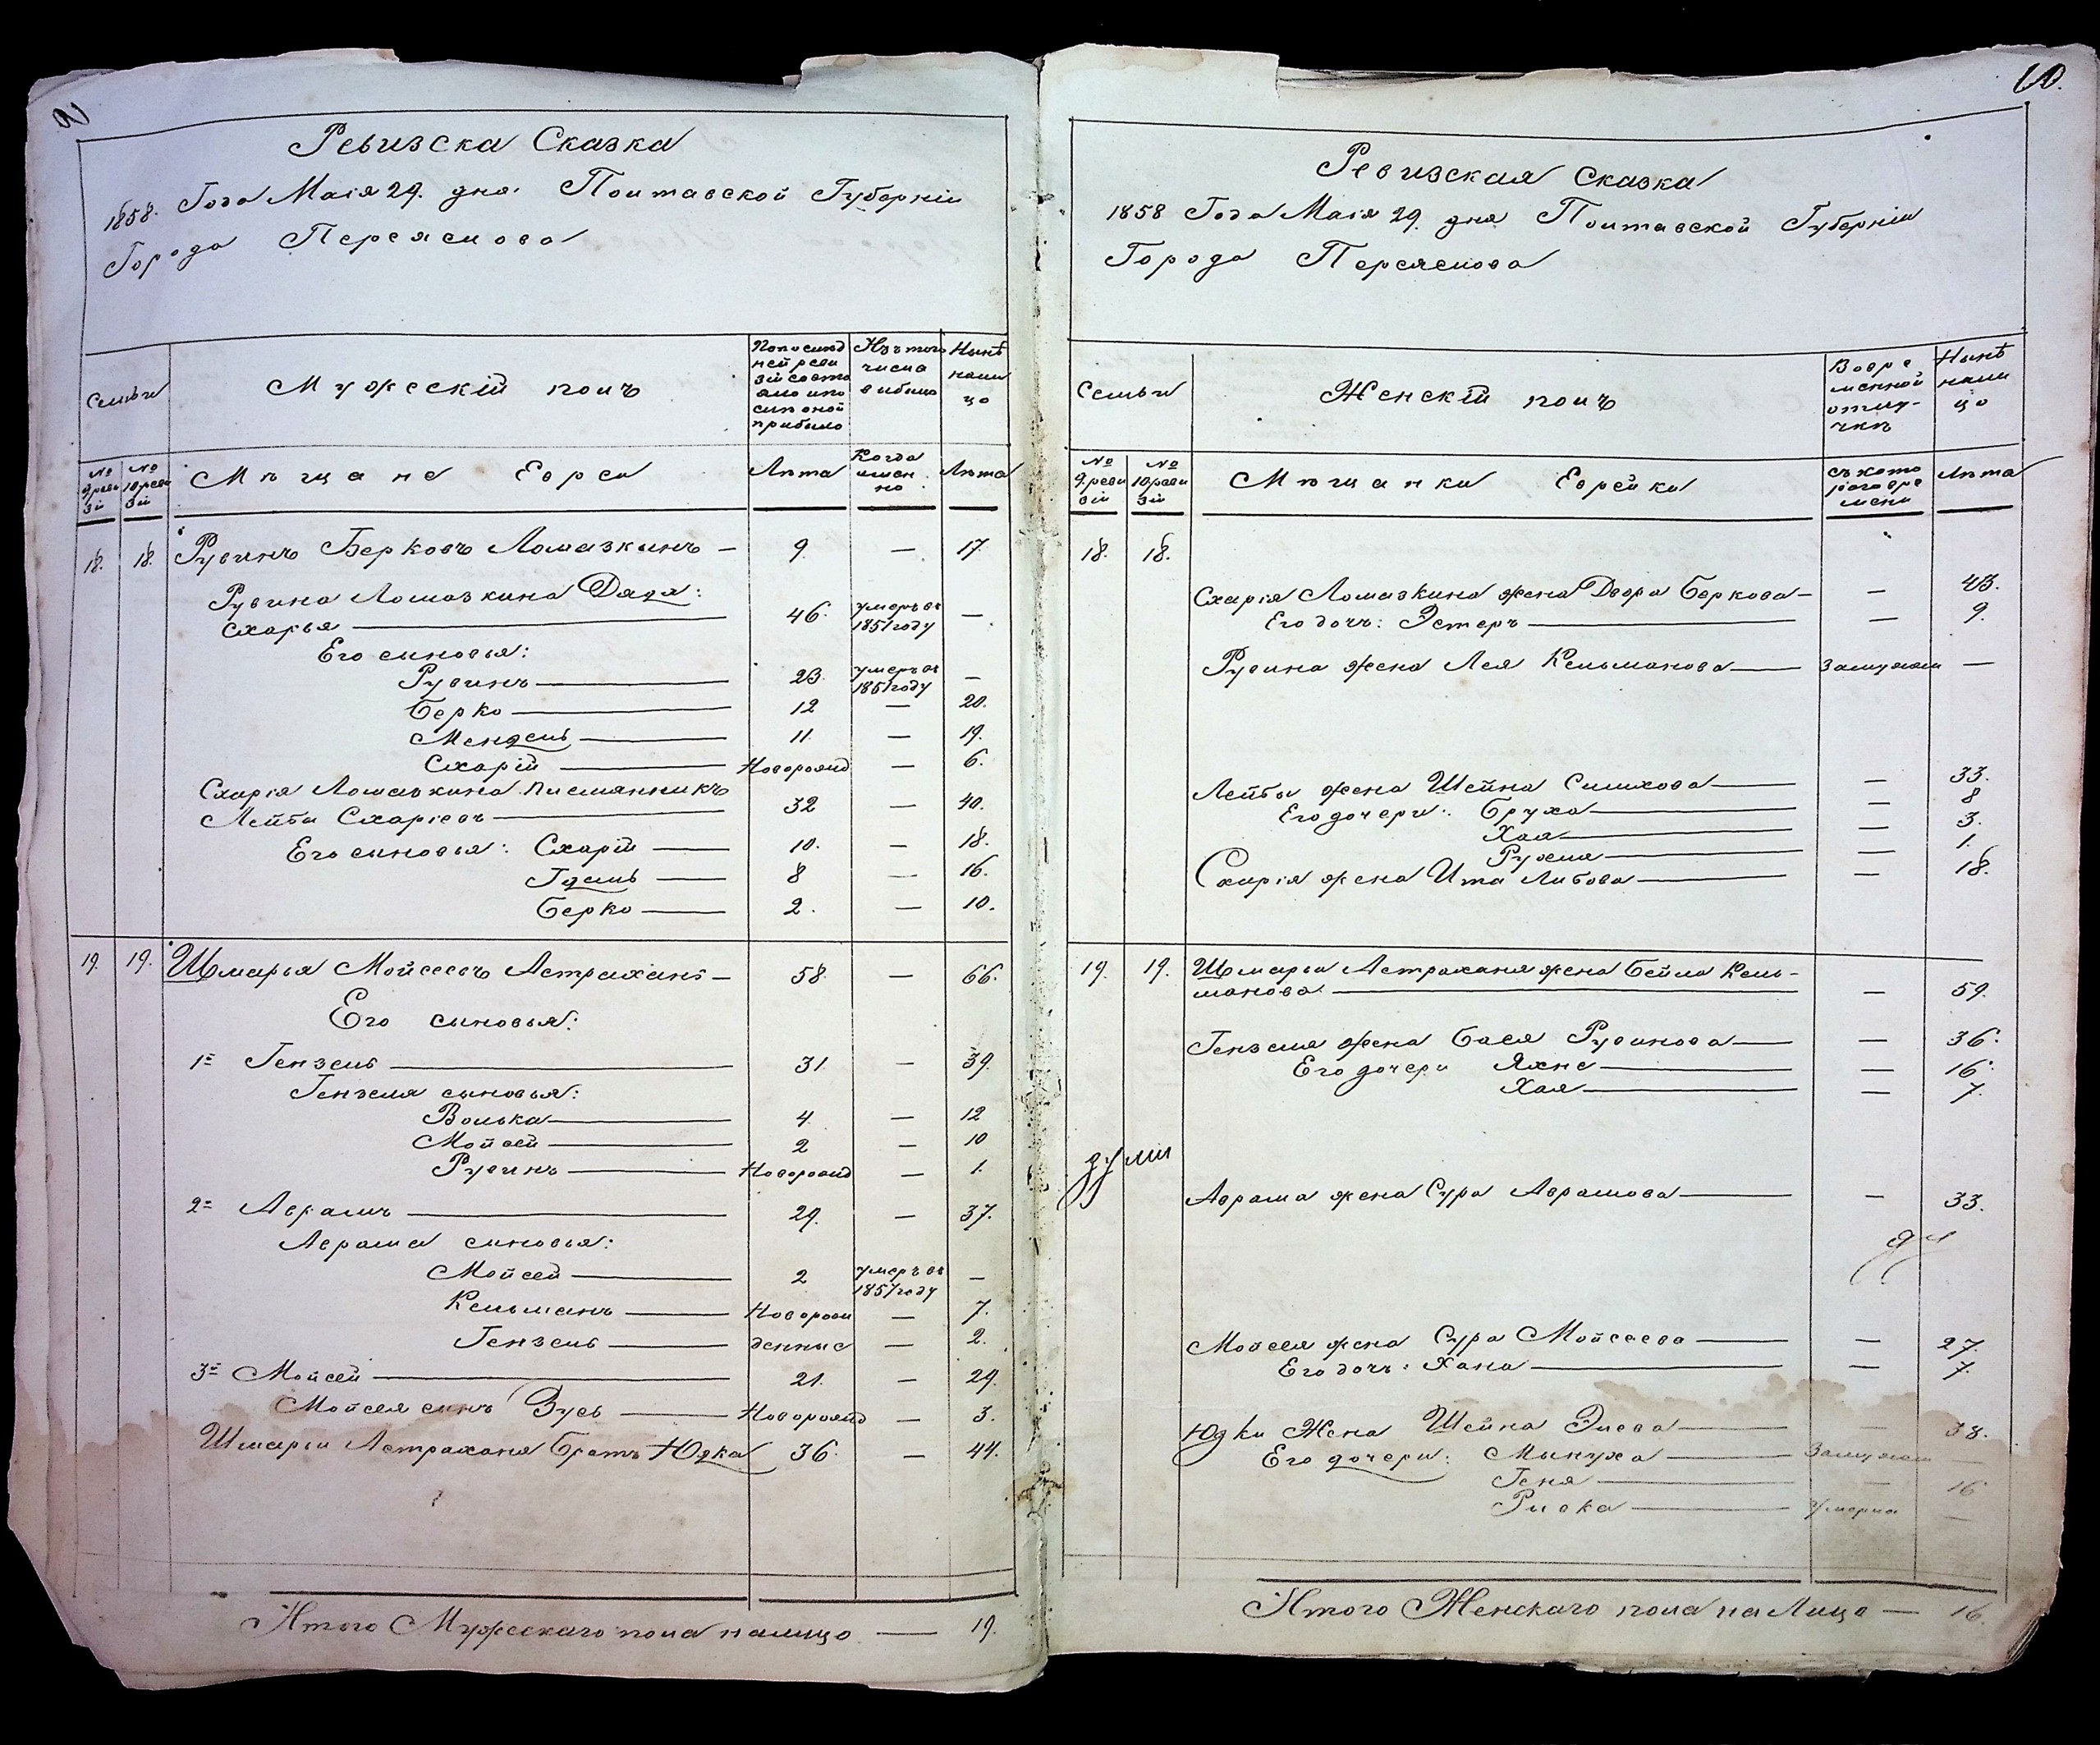 9
Ревизска Сказка
1858. Года Маія 29. дня. Полтавской Губерніи
Города Переяслова
Семьи
Мужескій полъ
Попослѣд
ней реви
зіи состо
яло и по
слѣ оной
прибыло
Изъ того
числа
выбыло
Нынѣ
нали
цо
№
9 реви
зіи
№
10 реви
зіи
Мѣщане Евреи
Лѣта
Когда
имен
но
Лѣта
18. 18. Рувинъ Берковъ Ломазкинъ — 9. — 17.
Рувина Ломазкина Дядя:
Схарья 46. умеръ въ 1851 году —
Его сыновья:
Рувинъ 23. умеръ въ 1851 году —
Берко 12 — 20.
Мендель 11. — 19.
Схарій Новорожд — 6.
Схарія Ломазкина племянникъ
Лейба Схаріевъ 32 — 40.
Его сыновья: Схарій 10. — 18.
Гдаль 8 — 16.
Берко 2. — 10.
19. 19. Шмарья Мойсеевъ Астрахань — 58. — 66.
Его сыновья:
1е Гензель 31. — 39.
Гензеля сыновья:
Волька 4. — 12
Мойсей 2 — 10
Рувинъ Новорожд — 1.
2е Аврамъ 29. — 37.
Аврама сыновья:
Мойсей 2 умеръ въ 1851 году —
Кельманъ Новорож — 7.
Гензель денные — 2.
3е Мойсей 21. — 29.
Мойсея сынъ Зусь Новорожд — 3.
Шмарьи Астраханя братъ Юдка 36. — 44.
Итого Мужескаго пола налицо — 19.
10.
Ревизская Сказка
1858 Года Маія 29. дня Полтавской Губерніи
Города Переяслова
Семьи
Женскій полъ
Вовре
менной
отлу-
чкѣ
Нынѣ
нали
цо
№
9. реви
зіи
№
10 реви
зіи
Мѣщанки Еврейки
съ кото
раго вре
мени
Лѣта
18. 18.
Схарія Ломазкина жена Двора Беркова — — 43.
Его дочь: Эстеръ — 9.
Рувина жена Лея Кельманова Замужем —
Лейбы жена Шейна Симхова — 33.
Его дочери: Бруха — 8
Хая — 3.
Рухля — 1.
Схарія жена Ита Либова — 18.
19. 19. Шмарьи Астраханя жена Бейла Кель-
манова — 59.
Гензеля жена Бася Рувинова — 36.
Его дочери Яхне — 16.
Хая — 7.
Аврама жена Сура Аврамова — 33.
Мойсея жена Сура Мойсеева — 27.
Его дочь: Хана — 7.
Юдки Жена Шейна Элева — 38.
Его дочери: Мынуха Замужем —
Геня — 16
Ривка Умерла —
Итого Женскаго пола на Лицо — 16.